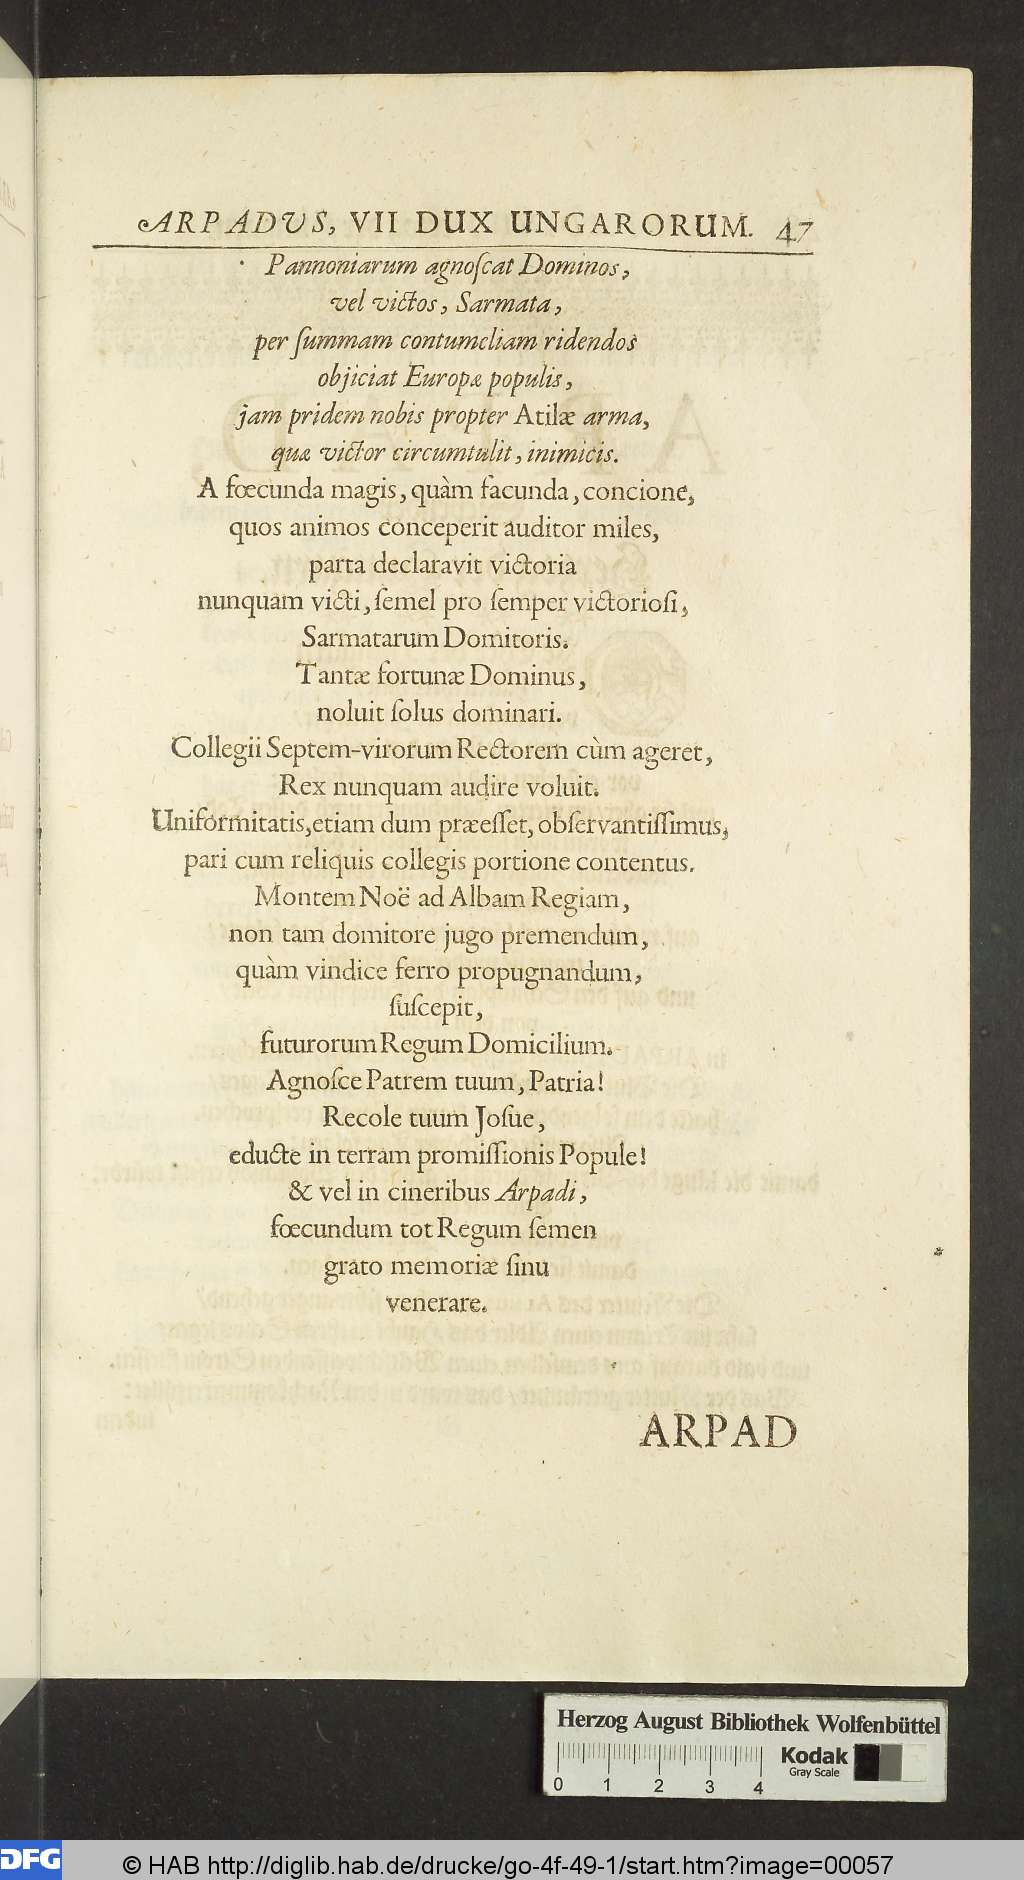 ARPADUS, VII DUX UNGARORUM. 47
Pannoniarum agnoſcat Dominos,
vel victos, Sarmata,
per ſummam contumeliam ridendos
objiciat Europæ populis,
jam pridem nobis propter Atilæ arma,
quæ victor circumtulit, inimicis.
A fœcunda magis, quàm facunda, concione,
quos animos conceperit auditor miles,
parta declaravit victoria
nunquam victi, ſemel pro ſemper victorioſi,
Sarmatarum Domitoris.
Tantæ fortunæ Dominus,
noluit ſolus dominari.
Collegii Septem-virorum Rectorem cùm ageret,
Rex nunquam audire voluit.
Uniformitatis, etiam dum præeſſet, obſervantiſſimus,
pari cum reliquis collegis portione contentus.
Montem Noë ad Albam Regiam,
non tam domitore jugo premendum,
quàm vindice ferro propugnandum,
ſuſcepit,
futurorum Regum Domicilium.
Agnoſce Patrem tuum, Patria!
Recole tuum Joſue,
educte in terram promiſſionis Popule!
& vel in cineribus Arpadi,
fœcundum tot Regum ſemen
grato memoriæ ſinu
venerare.
ARPAD
Herzog August Bibliothek Wolfenbüttel
Kodak
Gray Scale
0 1 2 3 4
DFG
© HAB http://diglib.hab.de/drucke/go-4f-49-1/start.htm?image=00057